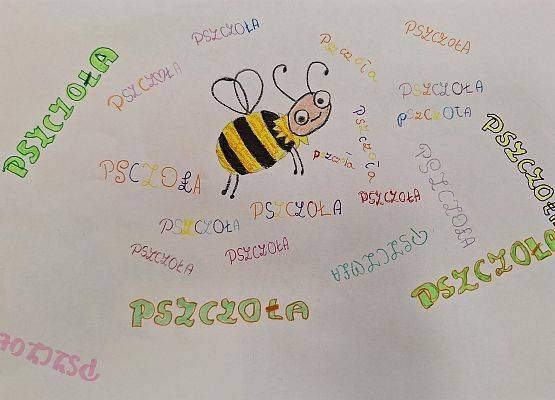 PSZCZOŁA
PSZCZOŁA
Pszczoła
PSZCZOŁA
PSZCZOŁA
PSZCZOŁA
PSZCZOŁA
PSZCZOŁA
Pszczoła
PSZCZOŁA
pszczoła
PSCZOŁA
PSZCZOŁA
PSZCZOŁA
PSZCZOŁA
PSZCZOŁA
PSZCZOŁA
PSZCZOŁA
PSZCZOŁA
PSZCZOŁA